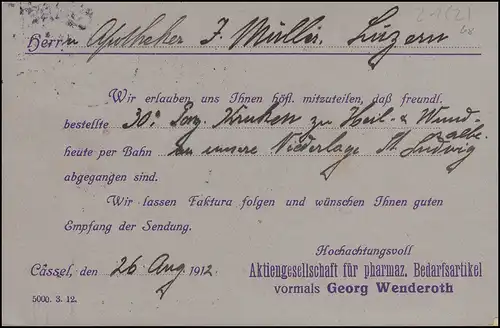 Herrn Apotheker J. Müller, Luzern
Wir erlauben uns Ihnen höfl. mitzuteilen, daß freundl.
bestellte 30. Porz. Kruken zu Heil- & Wund-
salbe
heute per Bahn an unsere Niederlage St. Ludwig
abgegangen sind.
Wir lassen Faktura folgen und wünschen Ihnen guten
Empfang der Sendung.
Hochachtungsvoll
Cássel, den 26 Aug 1912.
Aktiengesellschaft für pharmaz. Bedarfsartikel
vormals Georg Wenderoth
5000. 3. 12.